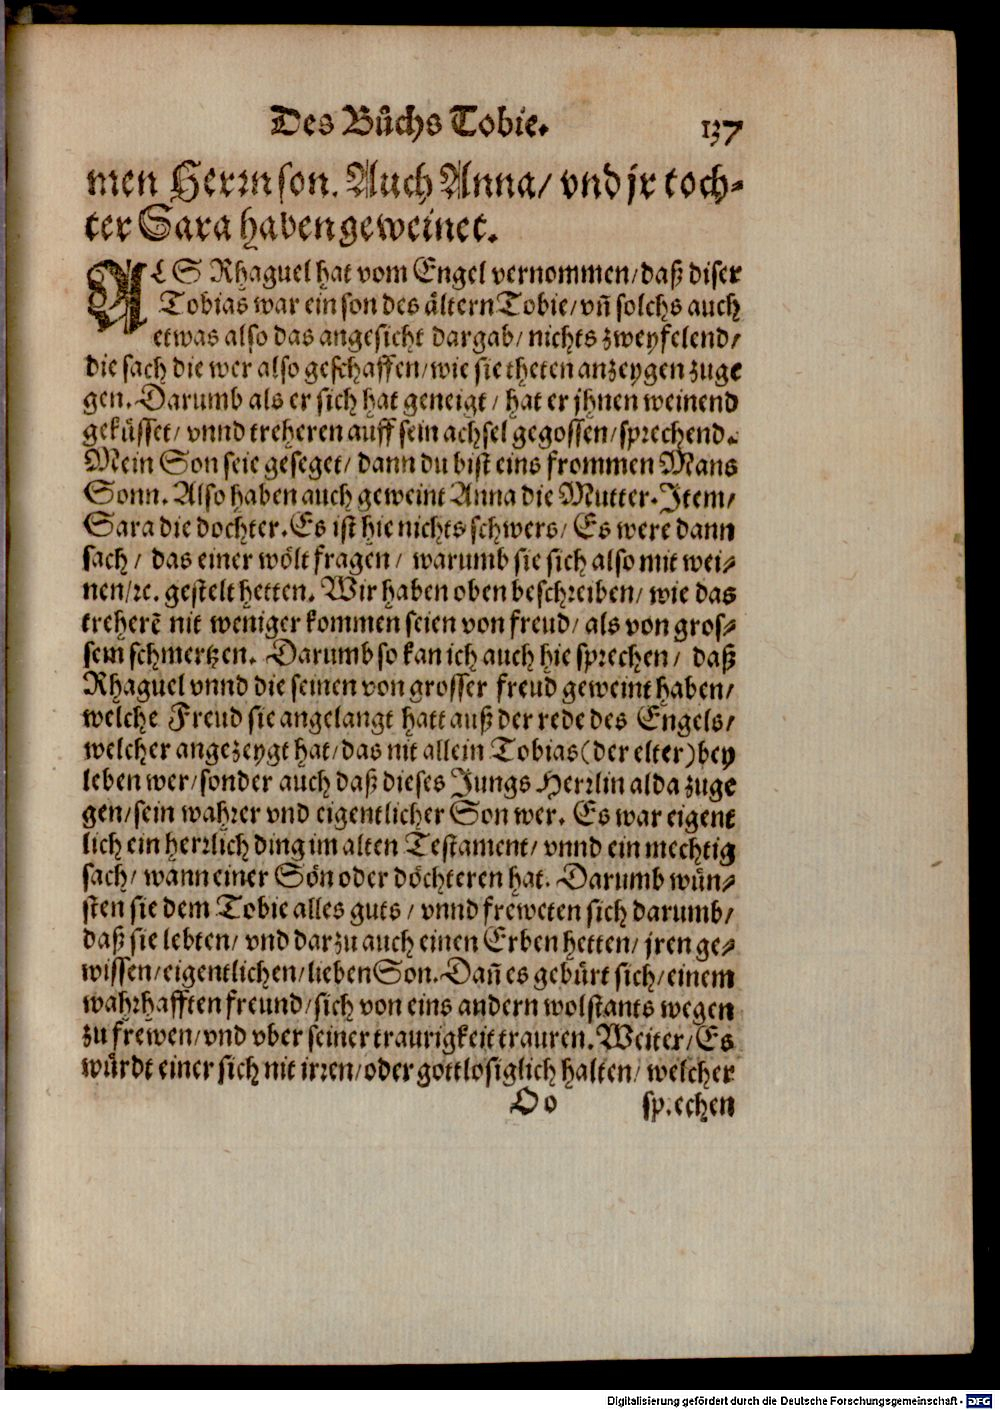 Des Bůchs Tobie. 137
men Herrn son. Auch Anna/ vnd jr toch⸗
ter Sara haben geweinet.
ALS Rhaguel hat vom Engel vernommen/ daß diser
Tobias war ein son des ältern Tobie/ vñ solchs auch
etwas also das angesicht dargab/ nichts zweyfelend/
die sach die wer also geschaffen/ wie sie theten anzeygen zuge
gen. Darumb als er sich hat geneigt/ hat er jhnen weinend
geküsset/ vnnd treheren auff sein achsel gegossen/ sprechend.
Mein Son seie geseget/ dann du bist eins frommen Mans
Sonn. Also haben auch geweint Anna die Mutter. Item/
Sara die dochter. Es ist hie nichts schwers/ Es were dann
sach/ das einer wölt fragen/ warumb sie sich also mit wei⸗
nen/ ꝛc. gestelt hetten. Wir haben oben beschreiben/ wie das
treherẽ nit weniger kommen seien von freud/ als von gros⸗
sem schmertzen. Darumb so kan ich auch hie sprechen/ daß
Rhaguel vnnd die seinen von grosser freud geweint haben/
welche Freud sie angelangt hatt auß der rede des Engels/
welcher angezeygt hat/ das nit allein Tobias (der elter) bey
leben wer/ sonder auch daß dieses Jungs Herrlin alda zuge
gen/ sein wahrer vnd eigentlicher Son wer. Es war eigent
lich ein herrlich ding im alten Testament/ vnnd ein mechtig
sach/ wann einer Sön oder döchteren hat. Darumb wün⸗
sten sie dem Tobie alles guts/ vnnd freweten sich darumb/
daß sie lebten/ vnd darzu auch einen Erben hetten/ jren ge⸗
wissen/ eigentlichen/ lieben Son. Dañ es gebürt sich/ einem
wahrhafften freund/ sich von eins andern wolstants wegen
zu frewen/ vnd vber seiner traurigkeit trauren. Weiter/ Es
würdt einer sich nit irren/ oder gottlosiglich halten/ welcher
Oo sp.echen
Digitalisierung gefördert durch die Deutsche Forschungsgemeinschaft - DFG